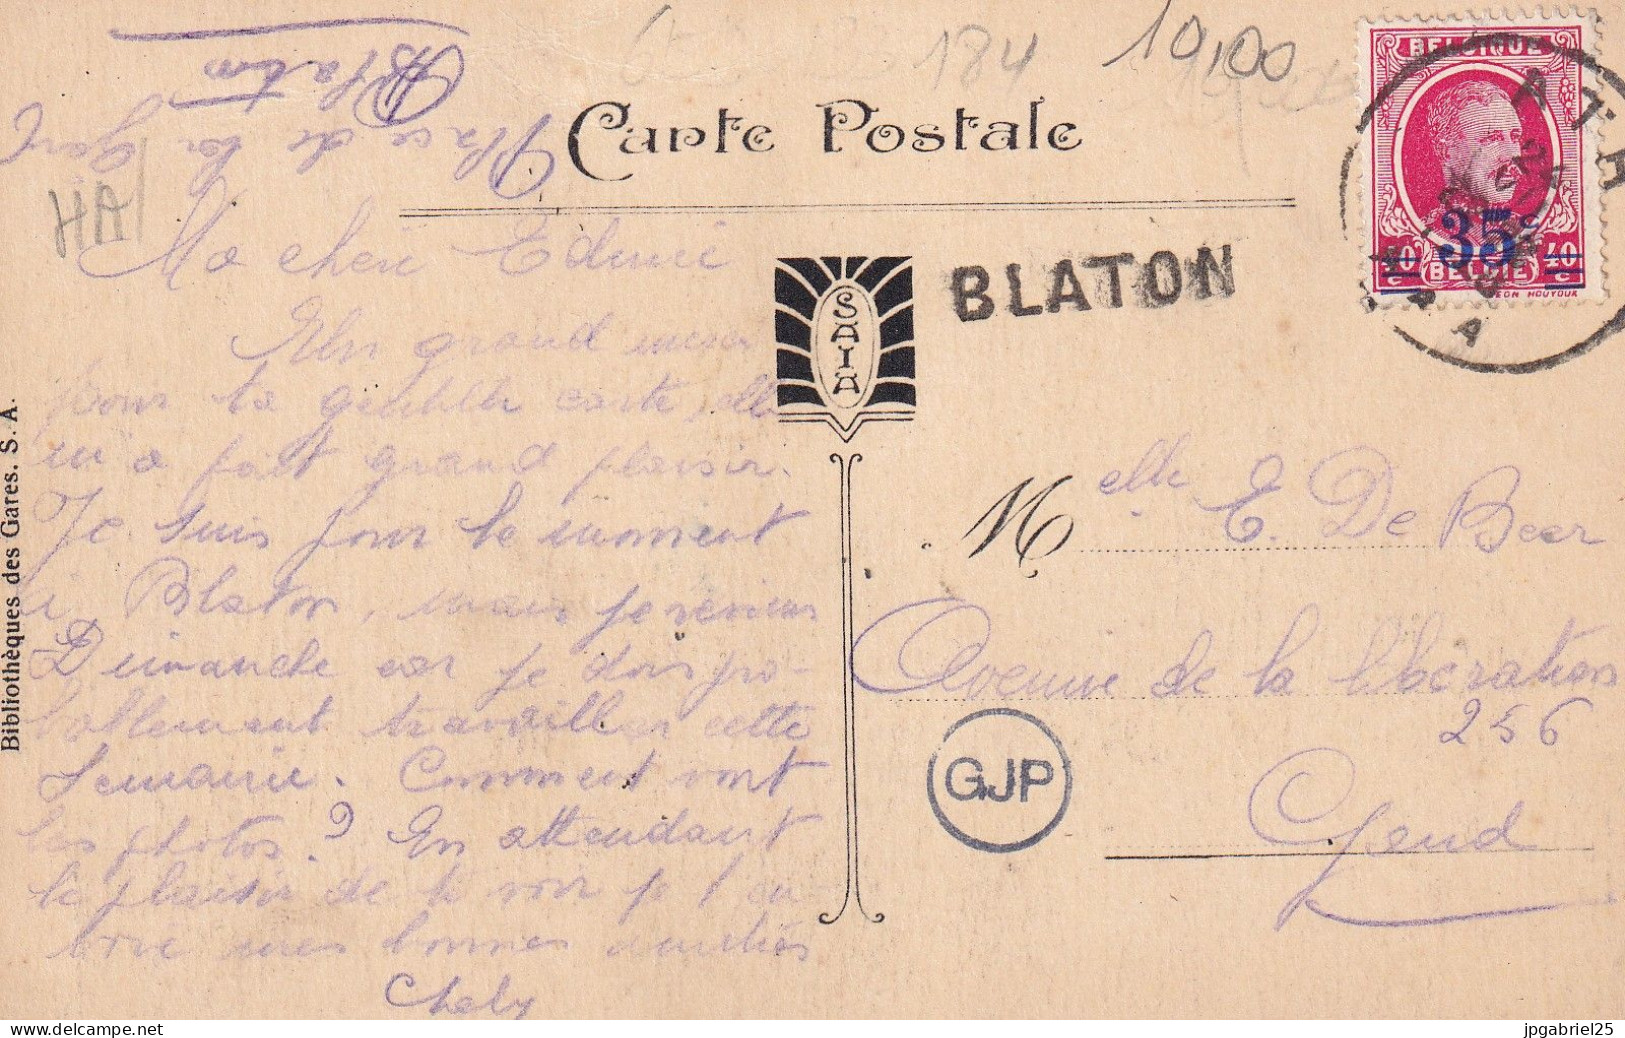 184 10,00
Blaton
Place de la Gare
Carte Postale
HA
BELGIQUE
35c
40 c 40 c
BELGIË
HOUYOUX
ATH
BLATON
SAIA
Bibliothèques des Gares. S. A.
Ma chère Edmée
Un grand merci
pour ta gentille carte, elle
m'a fait grand plaisir.
Je suis pour le moment
à Blaton, mais je reviens
Dimanche car je dois pro-
bablement travailler cette
semaine. Comment vont
les photos? En attendant
le plaisir de te voir je t'en-
voie mes bonnes amitiés
Melle E. De Beer
Avenue de la libération
256
Gend
GJP
jpgabriel25